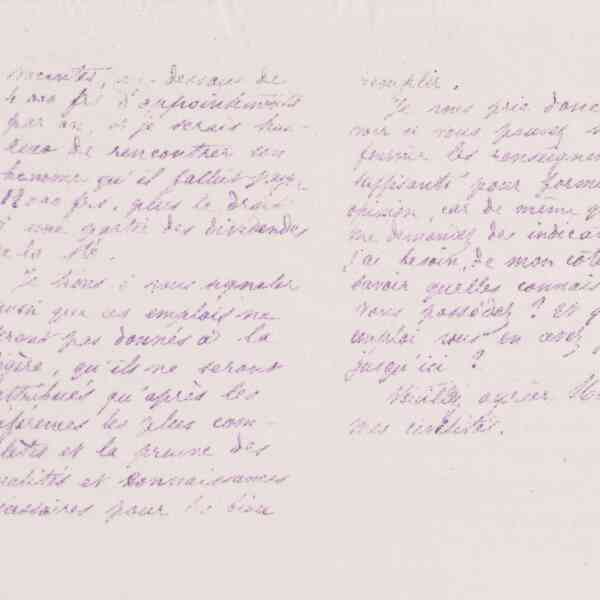 vacantes, au-dessous de
4 000 frs d'appointements
par an, et je serais heu-
reux de rencontrer un
homme qu'il fallut payer
12 000 frs. plus le droit
à une partie des dividendes
de la sté.
Je tiens à vous signaler
aussi que ces emplois ne
seront pas donnés à la
légère, qu'ils ne seront
attribués qu'après les
références les plus com-
plètes et la preuve des
qualités et connaissances
nécessaires pour les bien
remplir.
Je vous prie donc
voir si vous pouvez
fournir les renseignem
suffisants pour forme
opinion, car de même q
me demandez des indica
j'ai besoin, de mon côté
savoir quelles connais
vous possédez ? Et q
emploi vous en avez
jusqu'ici ?
Veuillez agréer
mes civilités.